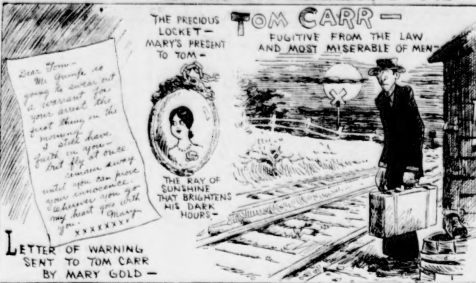 Dear Tom—
Mr. Gump is
going to swear out
a warrant for
your arrest the
first thing in the
morning
I still have
faith in you—
but fly at once
remain away
until you can prove
your innocence.
Wherever you go
my heart goes with
you— Mary
xxxxxxxx
LETTER OF WARNING
SENT TO TOM CARR
BY MARY GOLD—
THE PRECIOUS
LOCKET—
MARY'S PRESENT
TO TOM—
THE RAY OF
SUNSHINE
THAT BRIGHTENS
HIS DARK
HOURS—
TOM CARR—
FUGITIVE FROM THE LAW
AND MOST MISERABLE OF MEN—